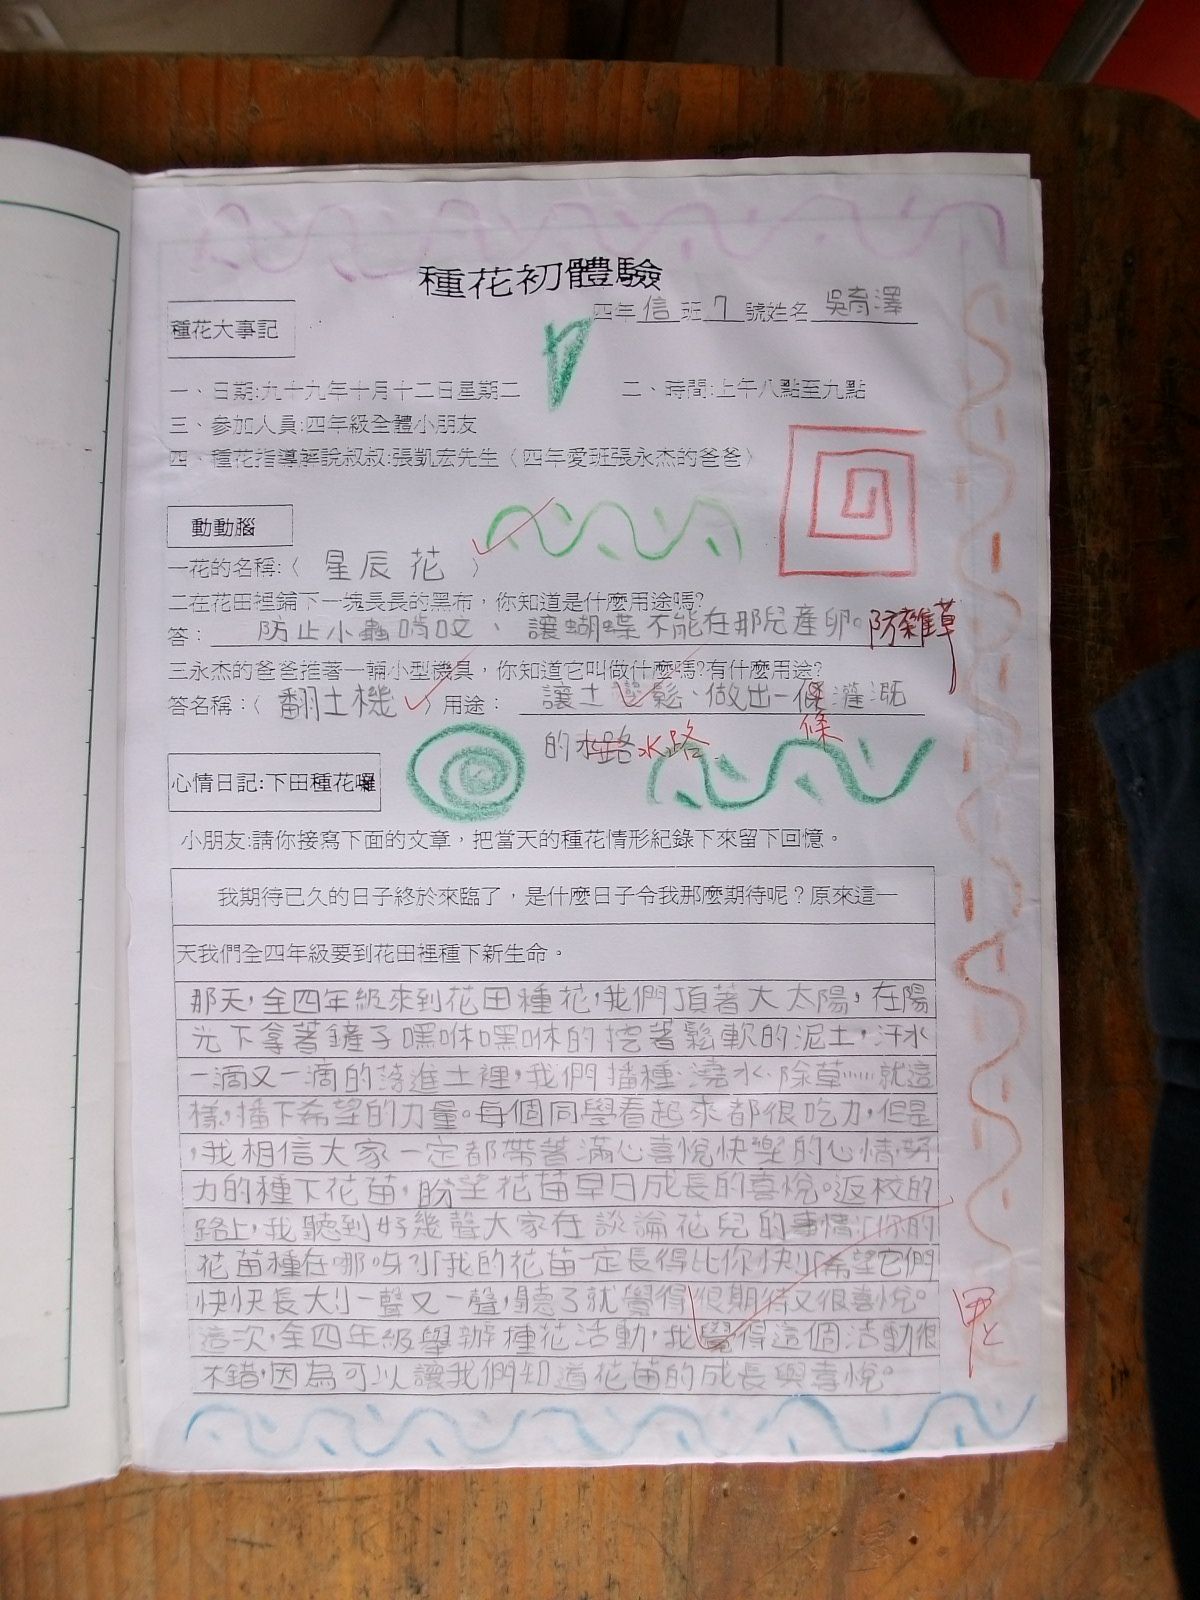 種花初體驗
四年 信 班 7 號姓名 吳育澤
種花大事記
一、日期:九十九年十月十二日星期二 二、時間:上午八點至九點
三、參加人員:四年級全體小朋友
四、種花指導解說叔叔:張凱宏先生〈四年愛班張永杰的爸爸〉
動動腦
一花的名稱:〈 星辰花 〉
二在花田裡鋪下一塊長長的黑布，你知道是什麼用途嗎?
答: 防止小蟲啃咬、讓蝴蝶不能在那兒產卵。防雜草
三永杰的爸爸推著一輛小型機具，你知道它叫做什麼嗎?有什麼用途?
答名稱：〈 翻土機 〉用途： 讓土變鬆、做出一條灌溉
條
的水路 水路
心情日記:下田種花囉
小朋友:請你接寫下面的文章，把當天的種花情形紀錄下來留下回憶。
我期待已久的日子終於來臨了，是什麼日子令我那麼期待呢？原來這一
天我們全四年級要到花田裡種下新生命。
那天，全四年級來到花田種花，我們頂著大太陽，在陽
光下拿著鏟子嘿咻嘿咻的挖著鬆軟的泥土，汗水
一滴又一滴的落進土裡，我們播種、澆水、除草……就這
樣，播下希望的力量。每個同學看起來都很吃力，但是
，我相信大家一定都帶著滿心喜悅快樂的心情，努
力的種下花苗，盼望花苗早日成長的喜悅。返校的
路上，我聽到好幾聲大家在談論花兒的事情：「你的
花苗種在哪呀?」「我的花苗一定長得比你快!」「希望它們
快快長大!」一聲又一聲，聽了就覺得很期待又很喜悅。
這次，全四年級舉辦種花活動，我覺得這個活動很
不錯，因為可以讓我們知道花苗的成長與喜悅。
甲上